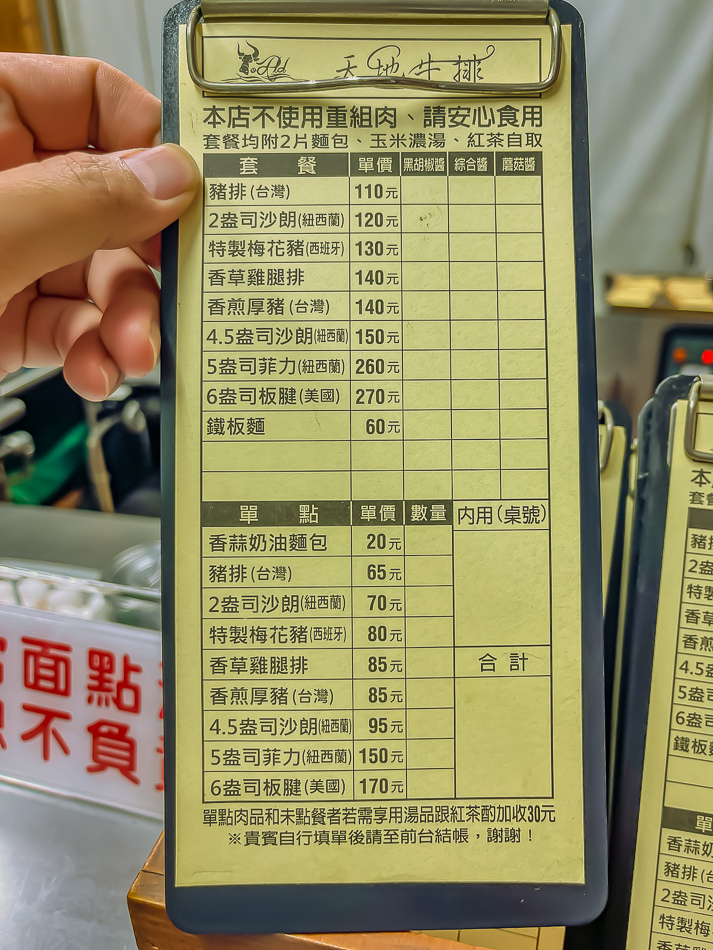 天地牛排
本店不使用重組肉、請安心食用
套餐均附2片麵包、玉米濃湯、紅茶自取
套 餐 單價 黑胡椒醬 綜合醬 蘑菇醬
豬排(台灣) 110元
2盎司沙朗(紐西蘭) 120元
特製梅花豬(西班牙) 130元
香草雞腿排 140元
香煎厚豬(台灣) 140元
4.5盎司沙朗(紐西蘭) 150元
5盎司菲力(紐西蘭) 260元
6盎司板腱(美國) 270元
鐵板麵 60元
單 點 單價 數量 內用(桌號)
香蒜奶油麵包 20元
豬排(台灣) 65元
2盎司沙朗(紐西蘭) 70元
特製梅花豬(西班牙) 80元
香草雞腿排 85元 合計
香煎厚豬(台灣) 85元
4.5盎司沙朗(紐西蘭) 95元
5盎司菲力(紐西蘭) 150元
6盎司板腱(美國) 170元
單點肉品和未點餐者若需享用湯品跟紅茶酌加收30元
※貴賓自行填單後請至前台結帳，謝謝！
面點
不負
本
套餐
豬排
2盎
特製
香草
香煎
4.5盎
5盎司
6盎司
鐵板麵
單
香蒜奶
豬排(台
2盎司
特製梅
香草雞